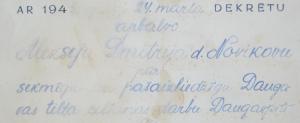 AR 194 24. marta DEKRĒTU
apbalvo
Alekseju Dmitrija d. Novikovu
par
sekmīgu un pašaizliedzīgu Dauga
vas tilta celtnes darbu Daugavpilī